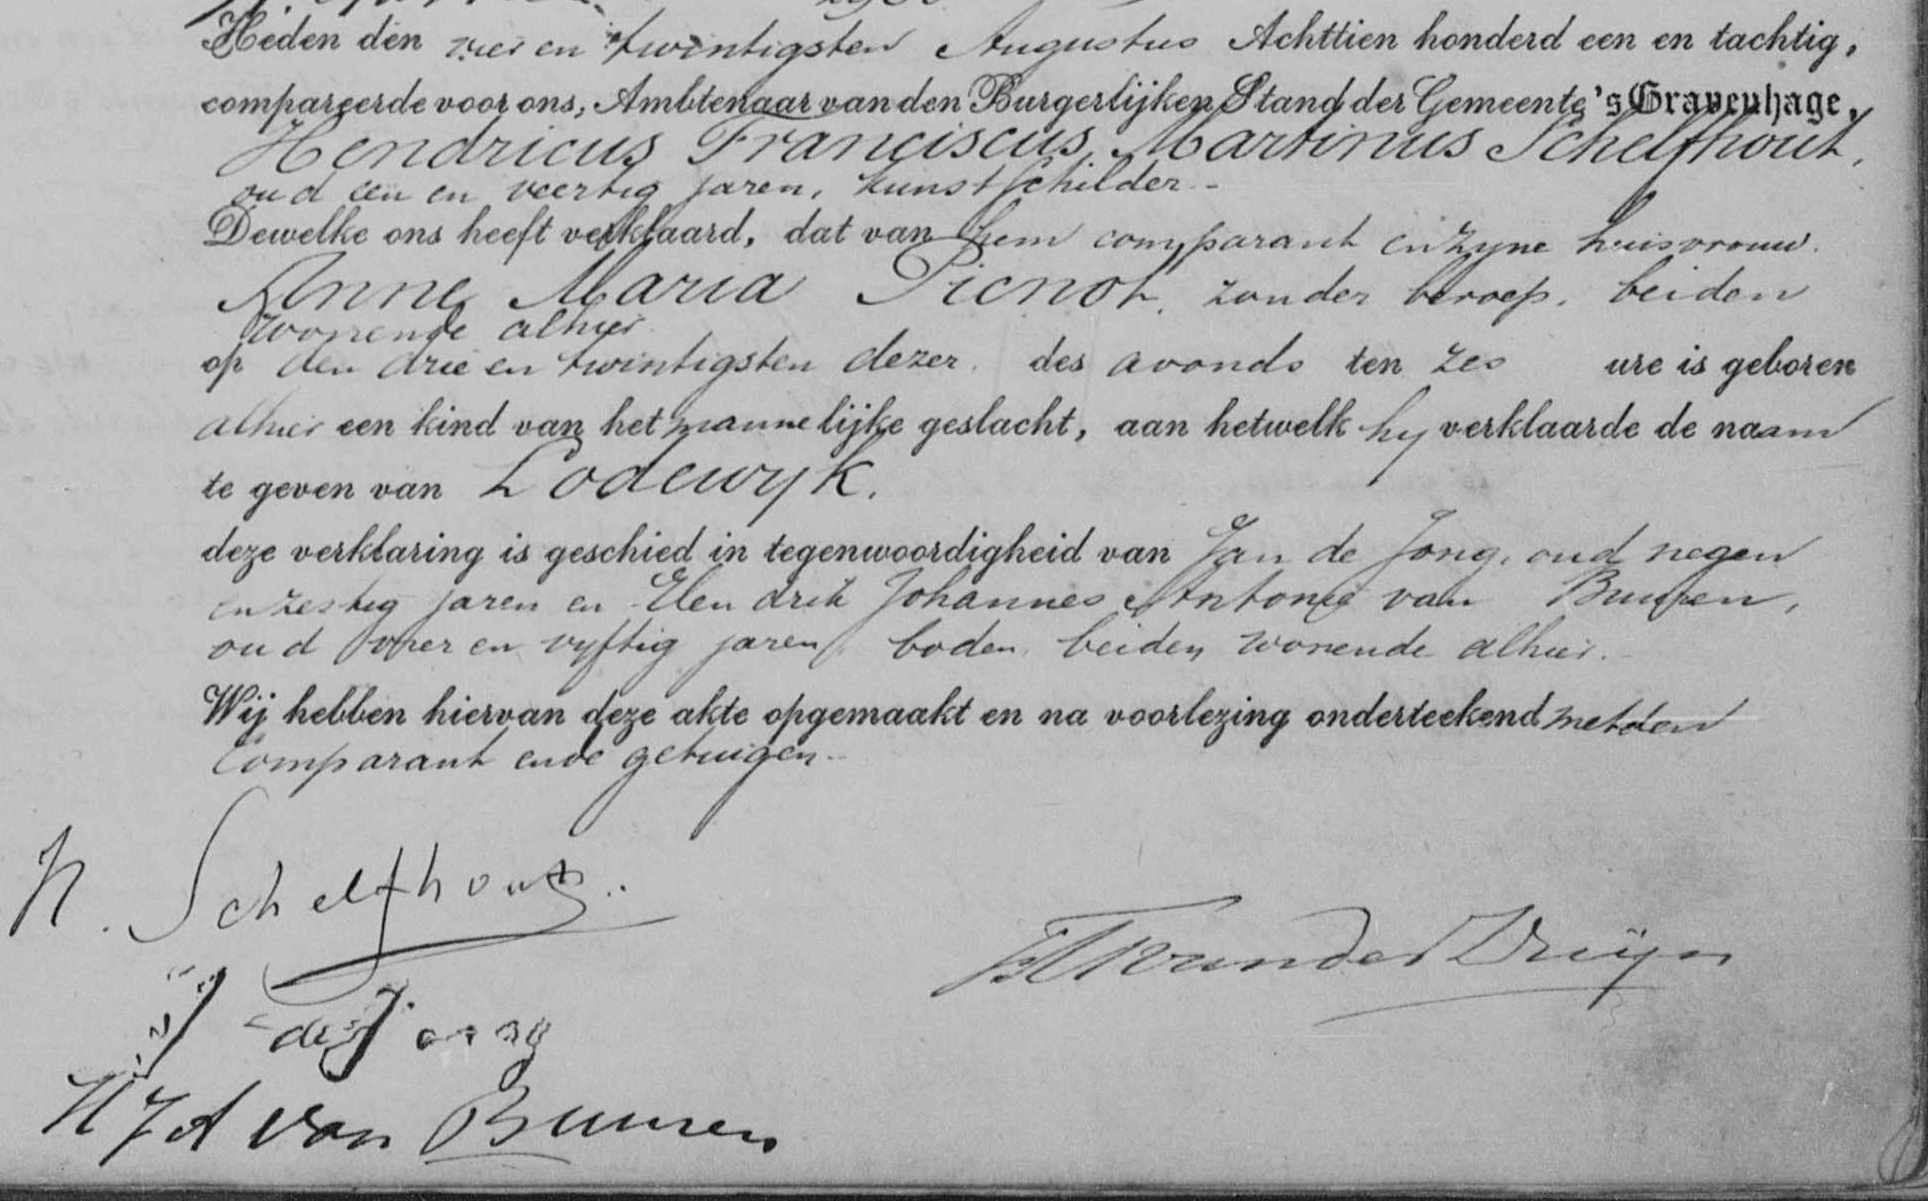 Heden den vier en twintigsten Augustus Achttien honderd een en tachtig,
compareerde voor ons, Ambtenaar van den Burgerlijken Stand der Gemeente 's Gravenhage,
Hendricus Franciscus Martinus Schelfhout,
oud een en veertig jaren, kunstschilder.-
Dewelke ons heeft verklaard, dat van hem comparant en zyne huisvrouw.
Anne Maria Picnot, zonder beroep, beiden
wonende alhier
op den drie en twintigsten dezer. des avonds ten zes ure is geboren
alhier een kind van het mannelijke geslacht, aan hetwelk hy verklaarde de naam
te geven van Lodewyk.
deze verklaring is geschied in tegenwoordigheid van Jan de Jong, oud negen
en zestig jaren en Hendrik Johannes Antonie van Buuren,
oud vier en vyftig jaren, boden, beiden wonende alhier.-
Wij hebben hiervan deze akte opgemaakt en na voorlezing onderteekend met den
Comparant en de getuigen.-
H. Schelfhout.
J de Jong
HJA van Buuren